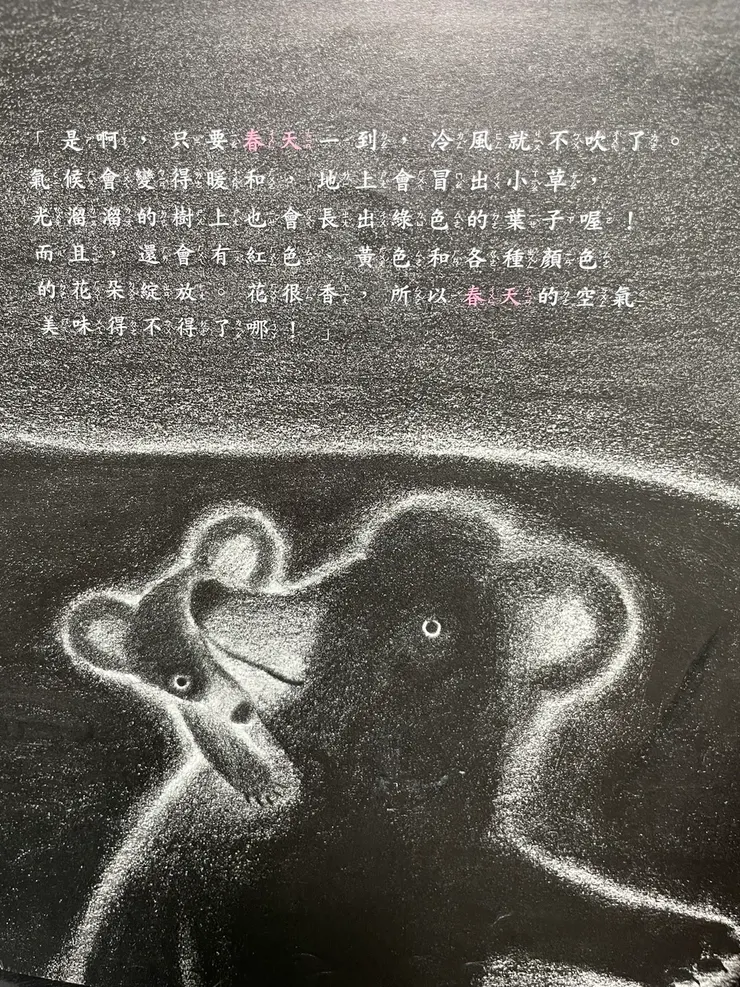 「是啊，只要春天一到，冷風就不吹了。
氣候會變得暖和，地上會冒出小草，
光溜溜的樹上也會長出綠色的葉子喔！
而且，還會有紅色、黃色和各種顏色
的花朵綻放。花很香，所以春天的空氣
美味得不得了哪！」